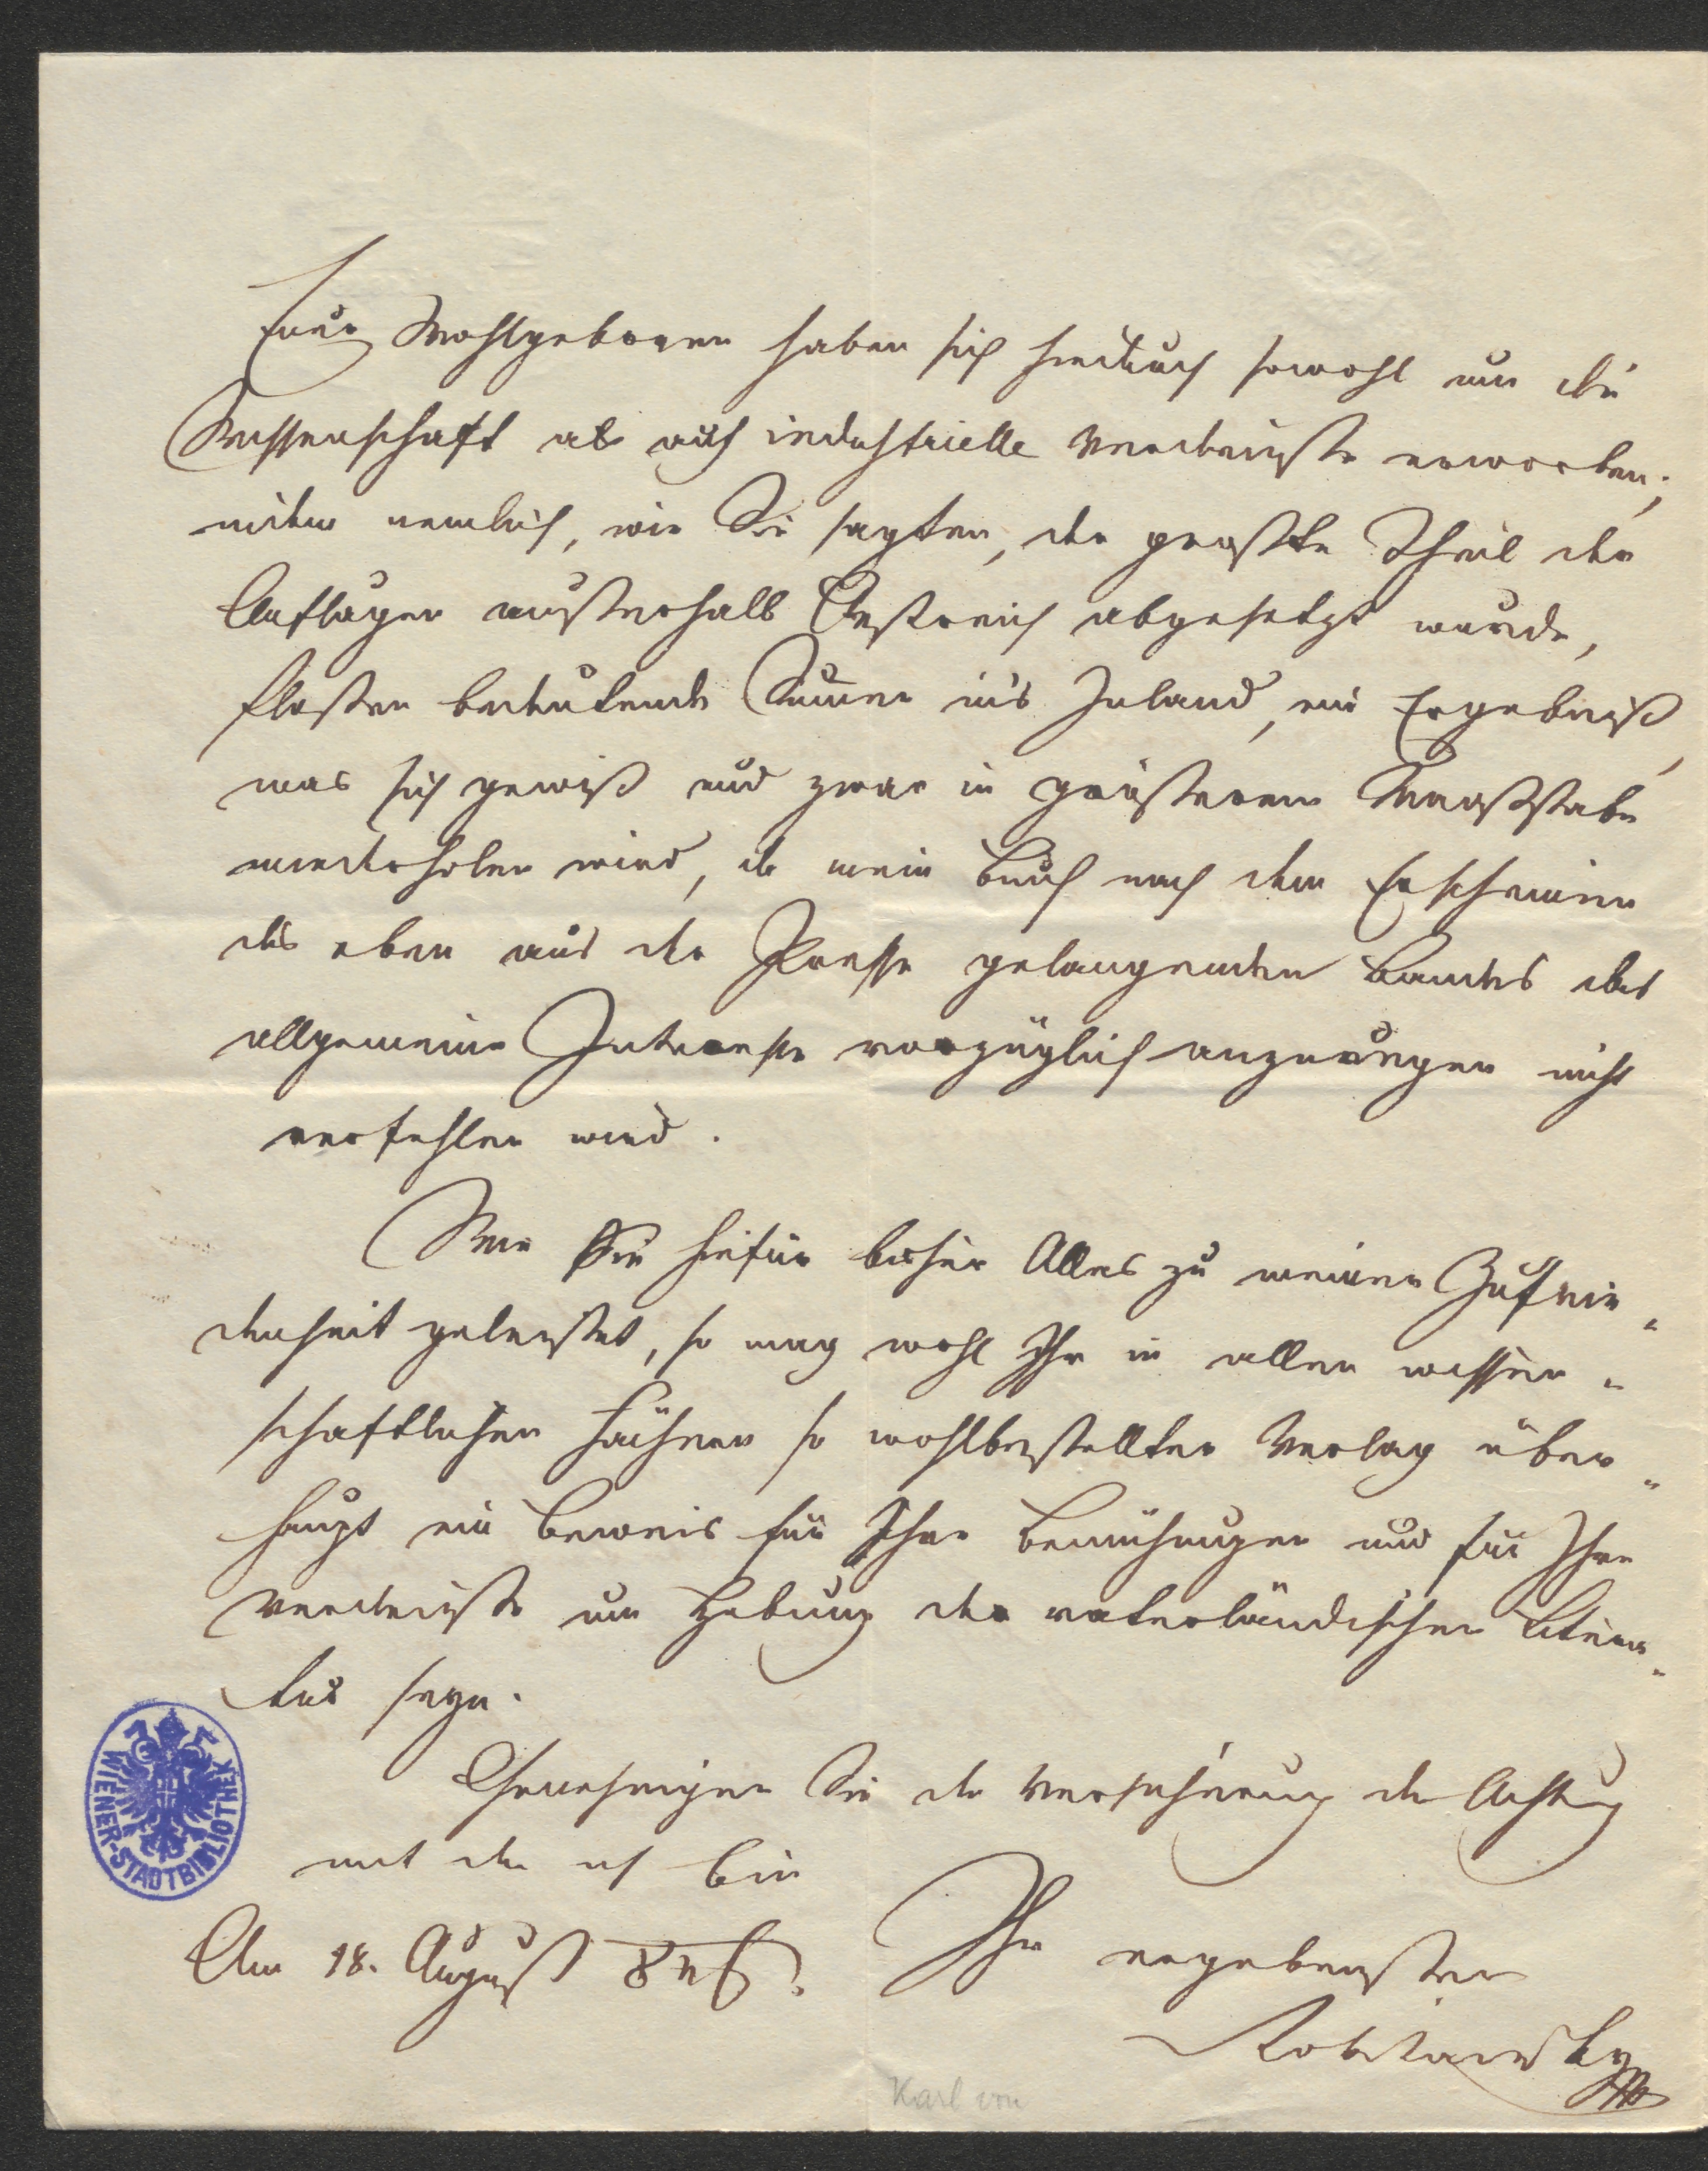 Euer Wohlgeboren haben sich hiedurch sowohl um die
Wissenschaft als auch industrielle Verdienste erworben;
indem nemlich, wie Sie sagten, der größte Theil der
Auflagen außerhalb Oestreich abgesetzt wurde,
floßen bedeutende Summen in's Inland, ein Ergebniß,
was sich gewiß und zwar in größerem Maaßstabe
wiederholen wird, da mein Buch nach dem Erscheinen
des eben aus der Presse gelangenden Bandes das
allgemeine Interesse vorzüglich anzuregen nicht
verfehlen wird.
Wie Sie hiefür bisher Alles zu meiner Zufrie„
denheit geleistet, so mag wohl Ihr in allen wissen„
schaftlichen Fächern so wohlbestellter Verlag über„
haupt ein Beweis für Ihre Bemühungen und für Ihre
Verdienste um Hebung der vaterländischen Litera„
tur seyn.
Genehmigen Sie die Versicherung der Achtung
mit der ich bin
Am 18. August Ihr ergebenster
Rokitansky
Karl von
WIENER-STADTBIBLIOTHEK